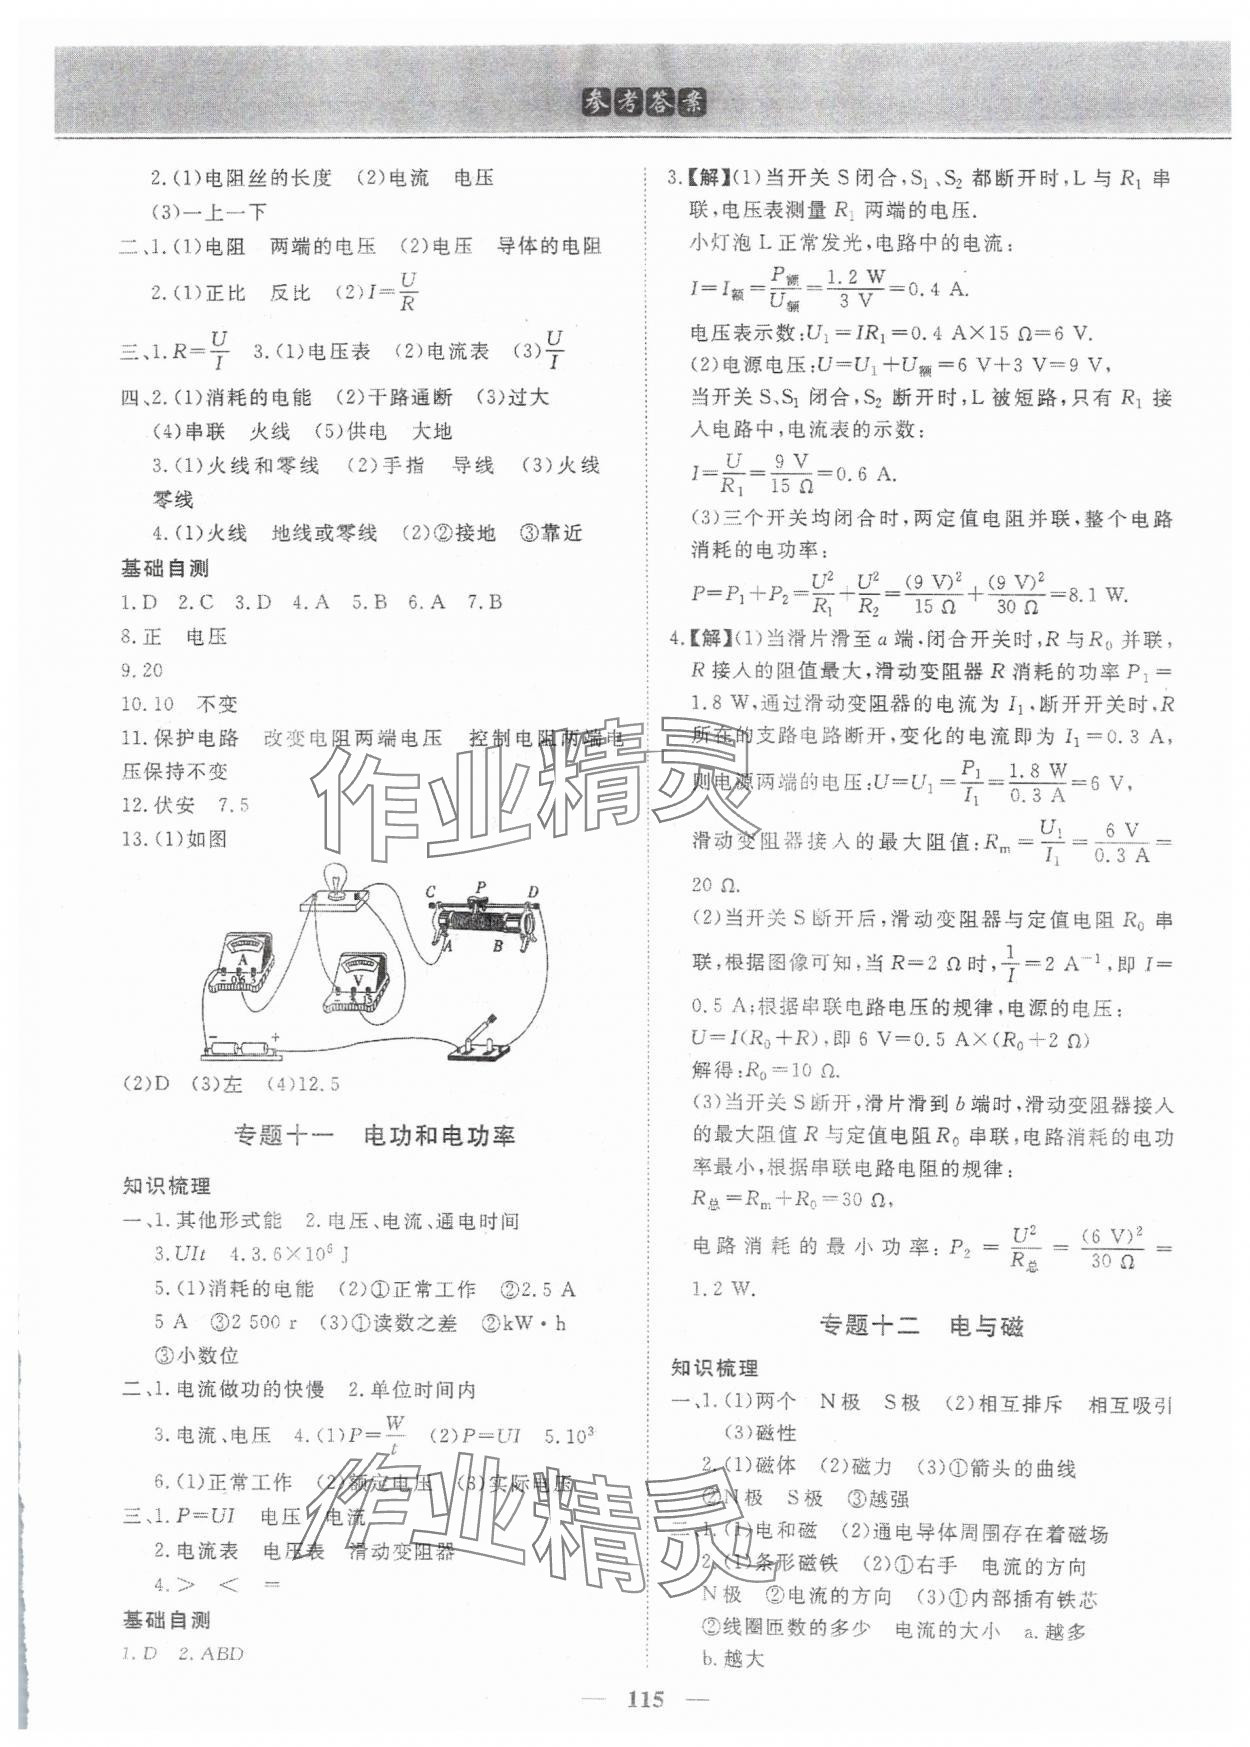 参考答案
2.(1)电阻丝的长度 (2)电流 电压
(3)一上一下
二、1.(1)电阻 两端的电压 (2)电压 导体的电阻
2.(1)正比 反比 (2)I=U/R
三、1.R=U/I 3.(1)电压表 (2)电流表 (3)U/I
四、2.(1)消耗的电能 (2)干路通断 (3)过大
(4)串联 火线 (5)供电 大地
3.(1)火线和零线 (2)手指 导线 (3)火线
零线
4.(1)火线 地线或零线 (2)②接地 ③靠近
基础自测
1.D 2.C 3.D 4.A 5.B 6.A 7.B
8.正 电压
9.20
10.10 不变
11.保护电路 改变电阻两端电压 控制电阻两端电
压保持不变
12.伏安 7.5
13.(1)如图
C P D
A B
A
- 0.6 3
V
- 3 15
- +
(2)D (3)左 (4)12.5
专题十一 电功和电功率
知识梳理
一、1.其他形式能 2.电压、电流、通电时间
3.UIt 4.3.6×10⁶ J
5.(1)消耗的电能 (2)①正常工作 ②2.5 A
5 A ③2 500 r (3)①读数之差 ②kW·h
③小数位
二、1.电流做功的快慢 2.单位时间内
3.电流、电压 4.(1)P=W/t (2)P=UI 5.10³
6.(1)正常工作 (2)额定电压 (3)实际电压
三、1.P=UI 电压 电流
2.电流表 电压表 滑动变阻器
4.> < =
基础自测
1.D 2.ABD
3.【解】(1)当开关S闭合,S₁、S₂都断开时,L与R₁串
联,电压表测量R₁两端的电压.
小灯泡L正常发光,电路中的电流:
I=I额=P额/U额=1.2 W/3 V=0.4 A.
电压表示数:U₁=IR₁=0.4 A×15 Ω=6 V.
(2)电源电压:U=U₁+U额=6 V+3 V=9 V,
当开关S、S₁闭合,S₂断开时,L被短路,只有R₁接
入电路中,电流表的示数:
I=U/R₁=9 V/15 Ω=0.6 A.
(3)三个开关均闭合时,两定值电阻并联,整个电路
消耗的电功率:
P=P₁+P₂=U²/R₁+U²/R₂=(9 V)²/15 Ω+(9 V)²/30 Ω=8.1 W.
4.【解】(1)当滑片滑至a端,闭合开关时,R与R₀并联,
R接入的阻值最大,滑动变阻器R消耗的功率P₁=
1.8 W,通过滑动变阻器的电流为I₁,断开开关时,R
所在的支路电路断开,变化的电流即为I₁=0.3 A,
则电源两端的电压:U=U₁=P₁/I₁=1.8 W/0.3 A=6 V,
滑动变阻器接入的最大阻值:Rm=U₁/I₁=6 V/0.3 A=
20 Ω.
(2)当开关S断开后,滑动变阻器与定值电阻R₀串
联,根据图像可知,当R=2 Ω时,1/I=2 A⁻¹,即I=
0.5 A;根据串联电路电压的规律,电源的电压:
U=I(R₀+R),即6 V=0.5 A×(R₀+2 Ω)
解得:R₀=10 Ω.
(3)当开关S断开,滑片滑到b端时,滑动变阻器接入
的最大阻值R与定值电阻R₀串联,电路消耗的电功
率最小,根据串联电路电阻的规律:
R总=Rm+R₀=30 Ω,
电路消耗的最小功率:P₂=U²/R总=(6 V)²/30 Ω=
1.2 W.
专题十二 电与磁
知识梳理
一、1.(1)两个 N极 S极 (2)相互排斥 相互吸引
(3)磁性
2.(1)磁体 (2)磁力 (3)①箭头的曲线
②N极 S极 ③越强
二、1.(1)电和磁 (2)通电导体周围存在着磁场
2.(1)条形磁铁 (2)①右手 电流的方向
N极 ②电流的方向 (3)①内部插有铁芯
②线圈匝数的多少 电流的大小 a.越多
b.越大
— 115 —
作业精灵
作业精灵